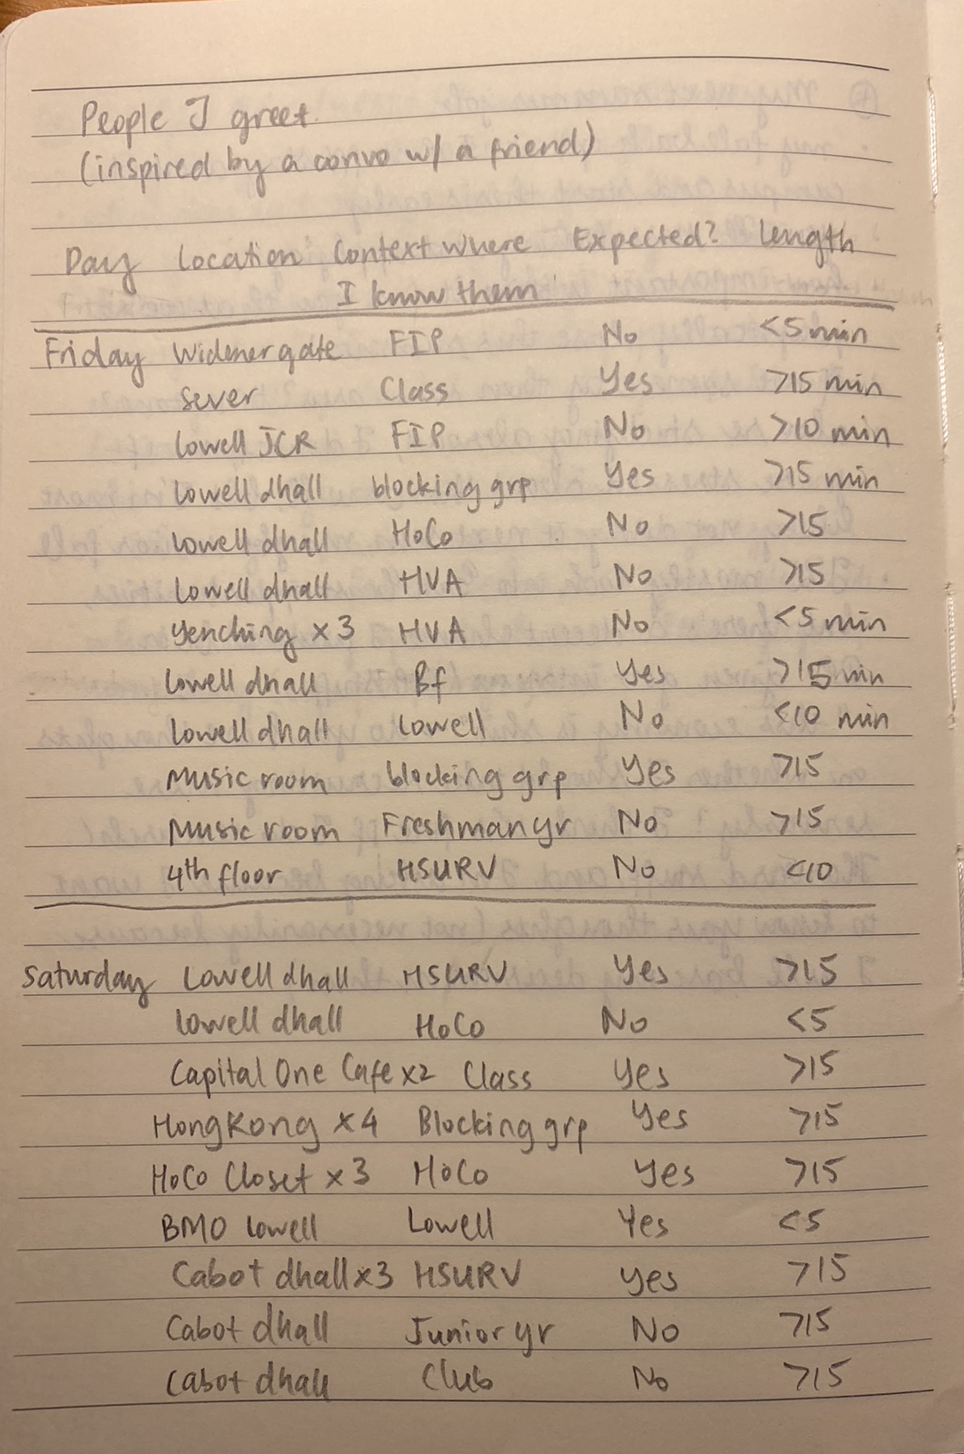 People I greet
(inspired by a convo w/ a friend)
Day Location Context where Expected? Length
I know them
Friday Widener gate FIP No <5 min
Sever Class Yes >15 min
Lowell JCR FIP No >10 min
Lowell dhall blocking grp Yes >15 min
Lowell dhall HoCo No >15
Lowell dhall HVA No >15
Yenching x3 HVA No <5 min
Lowell dhall Bf Yes >15 min
Lowell dhall Lowell No <10 min
Music room blocking grp Yes >15
Music room Freshman yr No >15
4th floor HSURV No <10
Saturday Lowell dhall HSURV Yes >15
Lowell dhall HoCo No <5
Capital One Cafe x2 Class Yes >15
HongKong x4 Blocking grp Yes >15
HoCo Closet x3 HoCo Yes >15
BMO Lowell Lowell Yes <5
Cabot dhall x3 HSURV Yes >15
Cabot dhall Junior yr No >15
Cabot dhall Club No >15